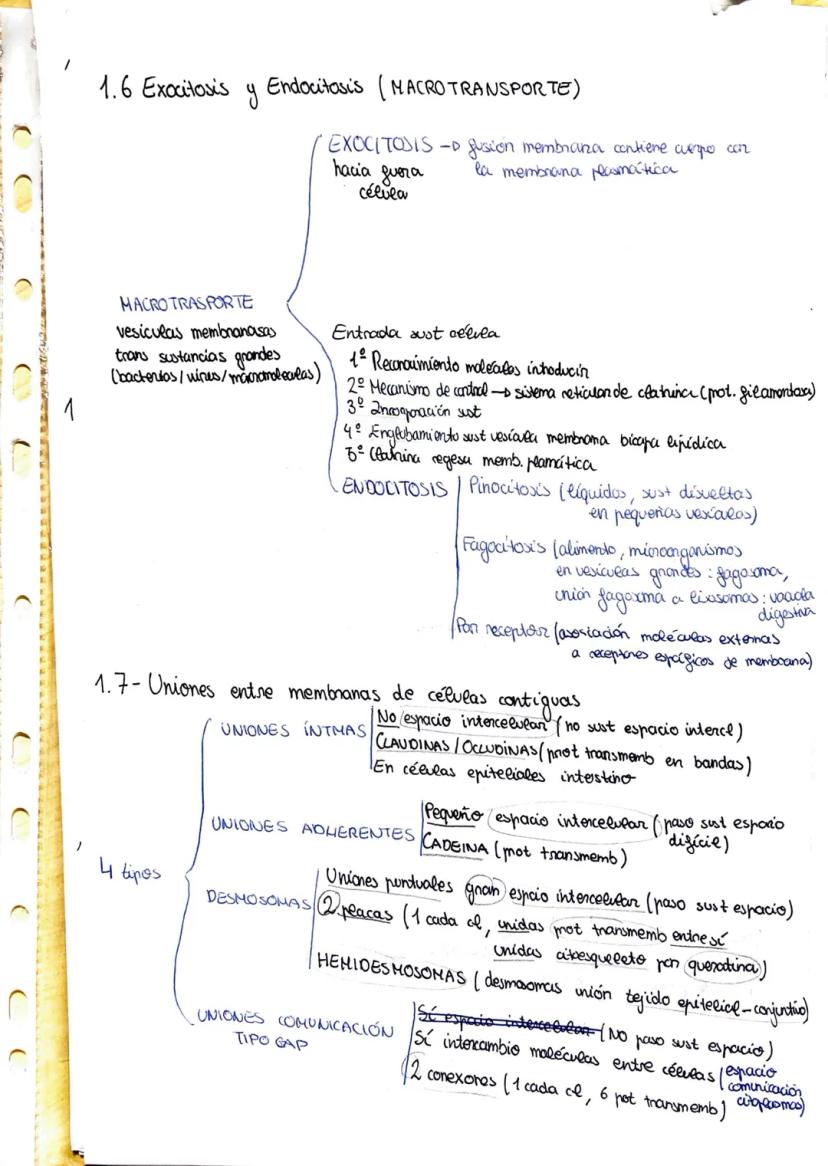 1.6 Exocitosis y Endocitosis (MACROTRANSPORTE)
EXOCITOSIS → fusión membrana contiene cuerpo con
la membrana plasmática
hacia fuera
célula
MACROTRASPORTE
vesículas membranosas
trans sustancias grandes
(bacterias/virus/macromoleculas)
Entrada sust célula
1º Reconocimiento moléculas introducir
2º Mecanismo de control → sistema reticular de clatrina (prot. filamentosa)
3º Incorporación sust
4º Englobamiento sust vesícula membrana bicapa lipídica
5º Clatrina regesa memb. plamática
ENDOCITOSIS
Pinocitosis (líquidos, sust disueltas
en pequeñas vesículas)
Fagocitosis (alimento, microorganismos
en vesículas grandes: fagosoma,
unión fagosoma a lisosomas: vacuola
digestiva
Por receptor (asociación moléculas externas
a receptores espcíficos de membrana)
1
1.7- Uniones entre membranas de células contiguas
4 tipos
UNIONES ÍNTMAS
No espacio intercelular (no sust espacio intercl)
CLAUDINAS/OCCLUDINAS (prot transmemb en bandas)
En células epiteliales intestino
UNIONES ADHERENTES
Pequeño espacio intercelular (paso sust espacio
difícil)
CADEINA (prot transmemb)
DESMOSOMAS
Uniones purduales gran espacio intercelular (paso sust espacio)
2 placas (1 cada cl, unidas prot transmemb entre sí
unidas citesqueleto por queratina)
HEMIDESMOSOMAS (desmosomas unión tejido epitelial-conjuntivo)
UNIONES COMUNICACIÓN
TIPO GAP
Sí espacio intercelular (NO paso sust espacio)
Sí intercambio moléculas entre células (espacio
comunicación
citoplasmas)
2 conexores (1 cada cl, 6 pot transmemb)